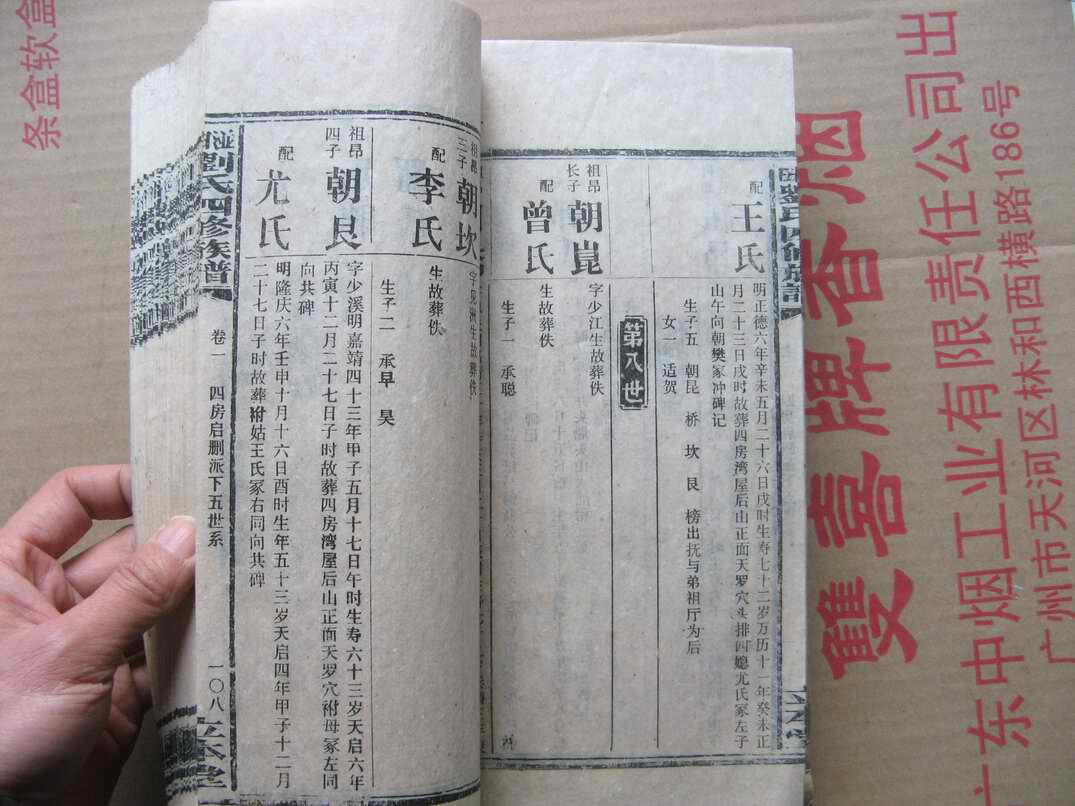 配 王氏
明正德六年辛未五月二十六日戌时生寿七十二岁万历十一年癸未正
月二十三日戌时故葬四房湾屋后山正面天罗穴头排四媳尤氏冢左子
山午向朝樊冢冲碑记
生子五 朝昆 桥 坎 艮 榜出抚与弟祖厅为后
女一 适贺
第八世
祖昂
长子
朝崑
字少江生故葬佚
配 曾氏
生故葬佚
生子一 承聪
祖昂
三子
朝坎
字见洲生故葬佚
配 李氏
生故葬佚
生子二 承早 昊
祖昂
四子
朝艮
字少溪明嘉靖四十三年甲子五月十七日午时生寿六十三岁天启六年
丙寅十二月二十七日子时故葬四房湾屋后山正面天罗穴祔母冢左同
向共碑
配 尤氏
明隆庆六年壬申十月十六日酉时生年五十三岁天启四年甲子十二月
二十七日子时故葬祔姑王氏冢右同向共碑
劉氏四修族譜
卷一
四房启删派下五世系
一〇八
立本堂
条盒软盒
雙喜牌香烟
广东中烟工业有限责任公司出
广州市天河区林和西横路186号